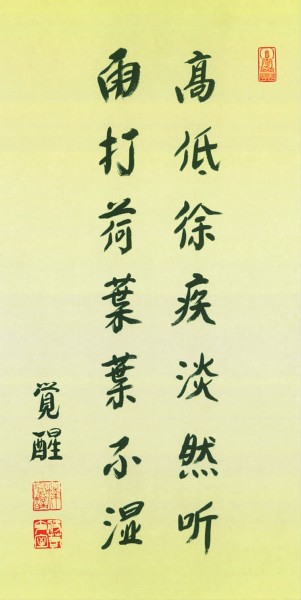 高低徐疾淡然听
雨打荷葉葉不湿
覚醒